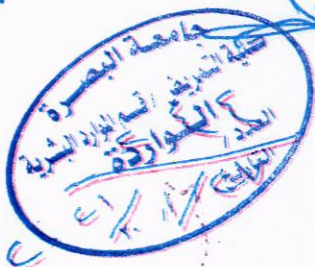 جامعة البصرة
كلية التمريض / قسم الموارد البشرية
الواردة
العدد
التاريخ